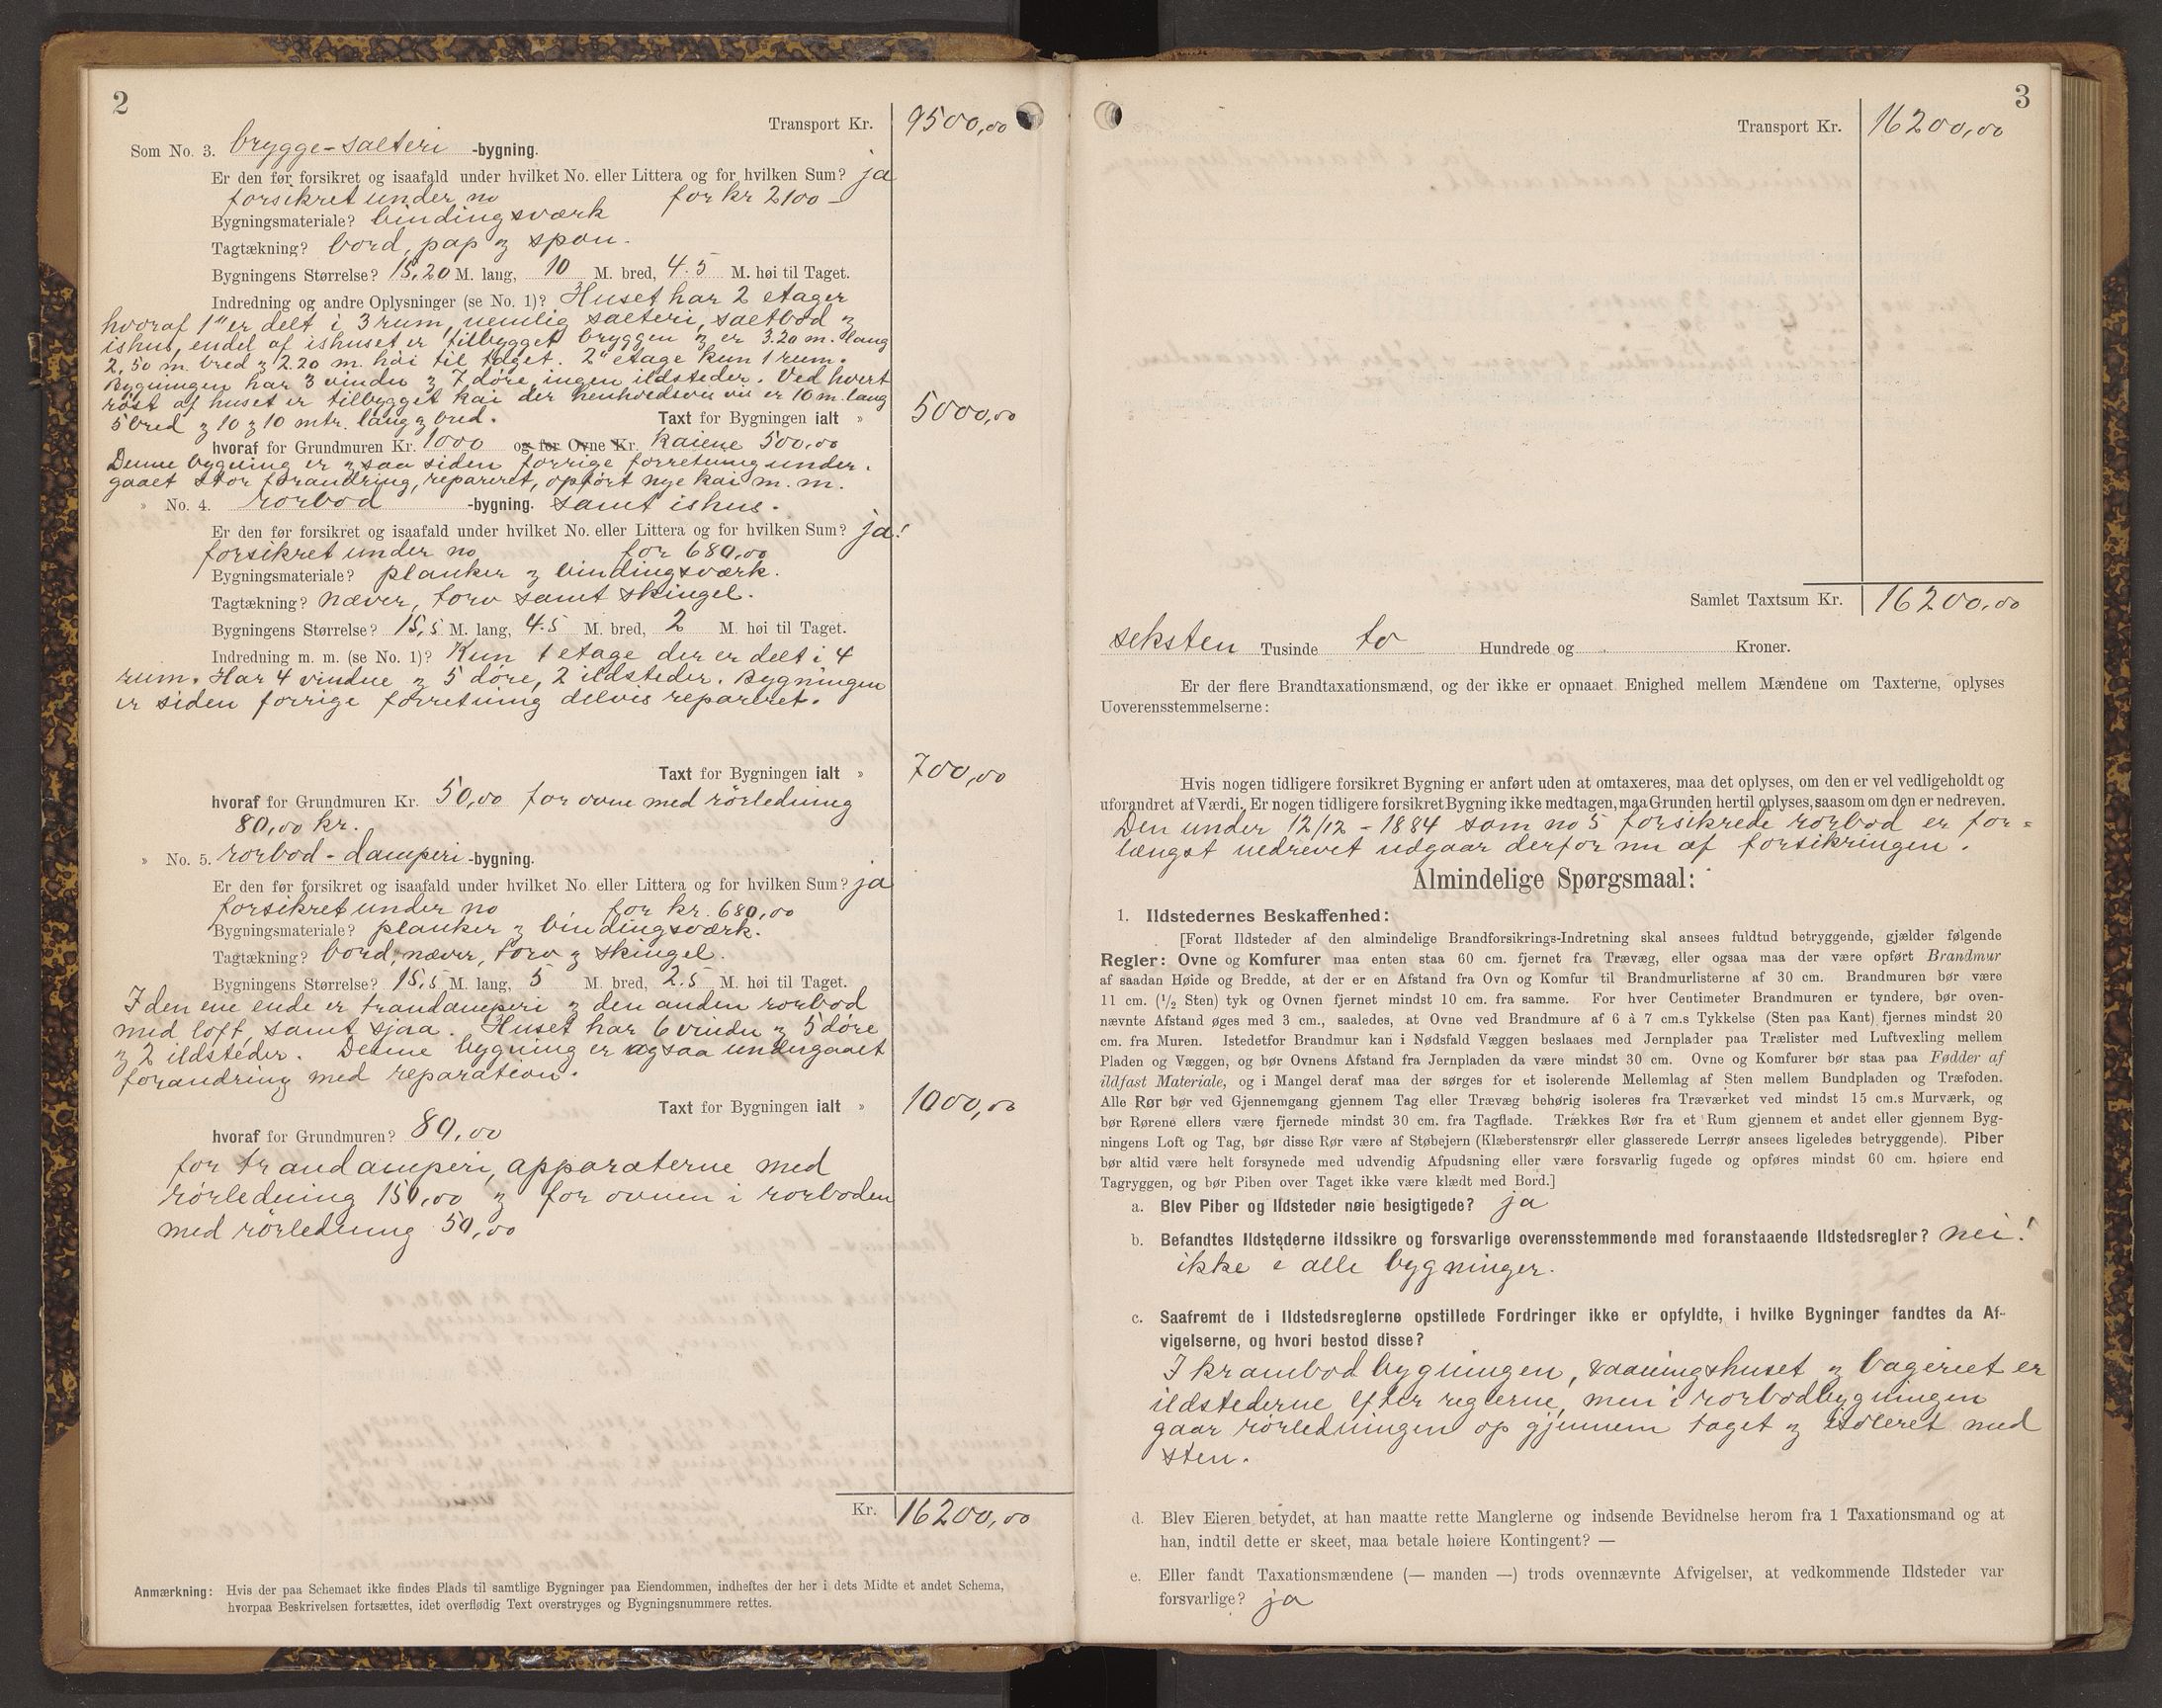 2
Transport Kr. 9500,00
Som No. 3. brygge-salteri -bygning.
Er den før forsikret og isaafald under hvilket No. eller Littera og for hvilken Sum? ja
forsikret under no for kr 2100 -
Bygningsmateriale? bindingsværk
Tagtækning? bord, pap & spon.
Bygningens Størrelse? 15,20 M. lang, 10 M. bred, 4.5 M. høi til Taget.
Indredning og andre Oplysninger (se No. 1)? Huset har 2 etager
hvoraf 1" er delt i 3 rum nemlig salteri, saltbod &
ishus, endel af ishuset er tilbygget bryggen & er 3.20 m. lang
2,50 m. bred & 2.20 m. høi til taget. 2" etage kun 1 rum.
Bygningen har 3 vindu & 7 døre, ingen ildsteder. Ved hvert
røst af huset er tilbygget kai der henholdsvis er 10 m. lang
5 bred & 10 & 10 mtr. lang & bred. Taxt for Bygningen ialt » 5000,00
hvoraf for Grundmuren Kr. 1000 og for Ovne Kr. kaiene 500,00
Denne bygning er & saa siden forrige forretning under-
gaaet stor forandring, repareret, opført nye kai m. m.
» No. 4. rorbod -bygning. samt ishus.
Er den før forsikret og isaafald under hvilket No. eller Littera og for hvilken Sum? ja!
forsikret under no for 680,00
Bygningsmateriale? planker & bindingsværk.
Tagtækning? næver, torv samt skingel.
Bygningens Størrelse? 15,5 M. lang, 4.5 M. bred, 2 M. høi til Taget.
Indredning m. m. (se No. 1)? Kun 1 etage der er delt i 4
rum. Har 4 vindue & 5 døre, 2 ildsteder. Bygningen
er siden forrige forretning delvis repareret.
Taxt for Bygningen ialt » 700,00
hvoraf for Grundmuren Kr. 50,00 for ovne med rørledning
80,00 kr.
» No. 5. rorbod - damperi -bygning.
Er den før forsikret og isaafald under hvilket No. eller Littera og for hvilken Sum? ja
forsikret under no for kr. 680,00
Bygningsmateriale? planker & bindingsværk.
Tagtækning? bord, næver, torv & skingel.
Bygningens Størrelse? 15,5 M. lang, 5 M. bred, 2.5 M. høi til Taget.
I den ene ende er trandamperi & den anden rorbod
med loft, samt sjaa. Huset har 6 vindu & 5 døre
& 2 ildsteder. Denne bygning er ogsaa undergaaet
forandring med reparation.
Taxt for Bygningen ialt » 1000,00
hvoraf for Grundmuren? 80,00
for trandamperi, apparaterne med
rørledning 150,00 & for ovnen i rorboden
med rørledning 50,00
Kr. 16200,00
Anmærkning: Hvis der paa Schemaet ikke findes Plads til samtlige Bygninger paa Eiendommen, indheftes der her i dets Midte et andet Schema,
hvorpaa Beskrivelsen fortsættes, idet overflødig Text overstryges og Bygningsnummere rettes.
3
Transport Kr. 16200,00
Samlet Taxtsum Kr. 16200,00
seksten Tusinde to Hundrede og Kroner.
Er der flere Brandtaxationsmænd, og der ikke er opnaaet Enighed mellem Mændene om Taxterne, oplyses
Uoverensstemmelserne:
Hvis nogen tidligere forsikret Bygning er anført uden at omtaxeres, maa det oplyses, om den er vel vedligeholdt og
uforandret af Værdi. Er nogen tidligere forsikret Bygning ikke medtagen, maa Grunden hertil oplyses, saasom om den er nedreven.
Den under 12/12 - 1884 som no 5 forsikrede rorbod er for-
længst nedrevet udgaar derfor nu af forsikringen.
Almindelige Spørgsmaal:
1. Ildstedernes Beskaffenhed:
[Forat Ildsteder af den almindelige Brandforsikrings-Indretning skal ansees fuldtud betryggende, gjælder følgende
Regler: Ovne og Komfurer maa enten staa 60 cm. fjernet fra Trævæg, eller ogsaa maa der være opført Brandmur
af saadan Høide og Bredde, at der er en Afstand fra Ovn og Komfur til Brandmurlisterne af 30 cm. Brandmuren bør være
11 cm. (1/2 Sten) tyk og Ovnen fjernet mindst 10 cm. fra samme. For hver Centimeter Brandmuren er tyndere, bør oven-
nævnte Afstand øges med 3 cm., saaledes, at Ovne ved Brandmure af 6 à 7 cm.s Tykkelse (Sten paa Kant) fjernes mindst 20
cm. fra Muren. Istedetfor Brandmur kan i Nødsfald Væggen beslaaes med Jernplader paa Trælister med Luftvexling mellem
Pladen og Væggen, og bør Ovnens Afstand fra Jernpladen da være mindst 30 cm. Ovne og Komfurer bør staa paa Fødder af
ildfast Materiale, og i Mangel deraf maa der sørges for et isolerende Mellemlag af Sten mellem Bundpladen og Træfoden.
Alle Rør bør ved Gjennemgang gjennem Tag eller Trævæg behørig isoleres fra Træværket ved mindst 15 cm.s Murværk, og
bør Rørene ellers være fjernede mindst 30 cm. fra Tagflade. Trækkes Rør fra et Rum gjennem et andet eller gjennem Byg-
ningens Loft og Tag, bør disse Rør være af Støbejern (Klæberstensrør eller glasserede Lerrør ansees ligeledes betryggende). Piber
bør altid være helt forsynede med udvendig Afpudsning eller være forsvarlig fugede og opføres mindst 60 cm. høiere end
Tagryggen, og bør Piben over Taget ikke være klædt med Bord.]
a. Blev Piber og Ildsteder nøie besigtigede? ja
b. Befandtes Ildstederne ildssikre og forsvarlige overensstemmende med foranstaaende Ildstedsregler? nei!
ikke i alle bygninger.
c. Saafremt de i Ildstedsreglerne opstillede Fordringer ikke er opfyldte, i hvilke Bygninger fandtes da Af-
vigelserne, og hvori bestod disse?
I krambod bygningen, vaaningshuset & bageriet er
ildstederne efter reglerne, men i rorbodbygningen
gaar rørledningen op gjennem taget & isoleret med
sten.
d. Blev Eieren betydet, at han maatte rette Manglerne og indsende Bevidnelse herom fra 1 Taxationsmand og at
han, indtil dette er skeet, maa betale høiere Kontingent? —
e. Eller fandt Taxationsmændene (— manden —) trods ovennævnte Afvigelser, at vedkommende Ildsteder var
forsvarlige? ja